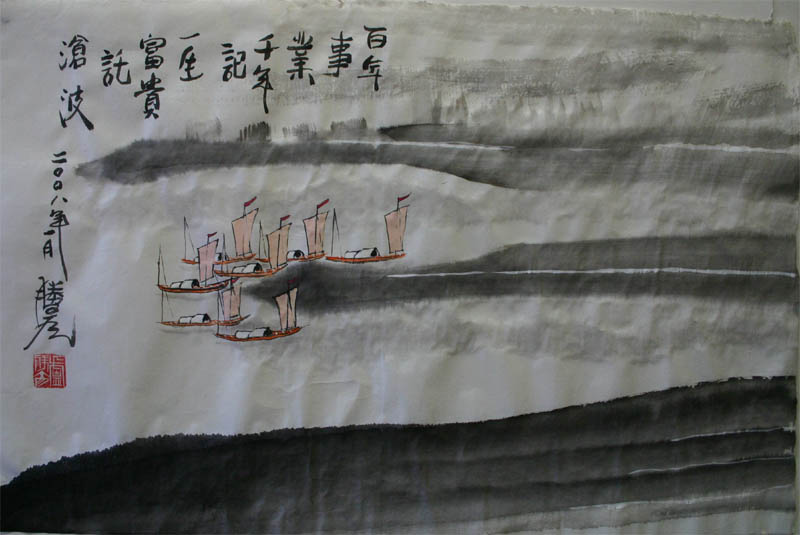 百年
事
業
千年
記
一生
富貴
託
滄波
二〇〇八年一月